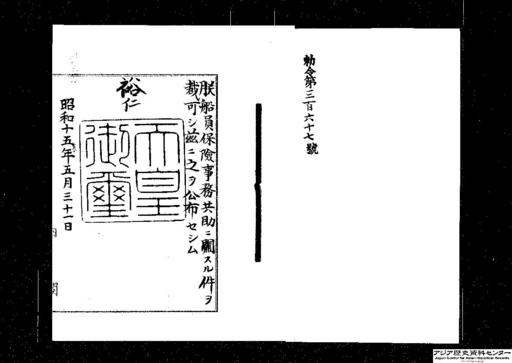 勅令第三百六十七號
朕船員保險事務共助ニ關スル件ヲ
裁可シ茲ニ之ヲ公布セシム
裕仁
天皇
御璽
昭和十五年五月三十一日
内閣
アジア歴史資料センター
Japan Center for Asian Historical Records